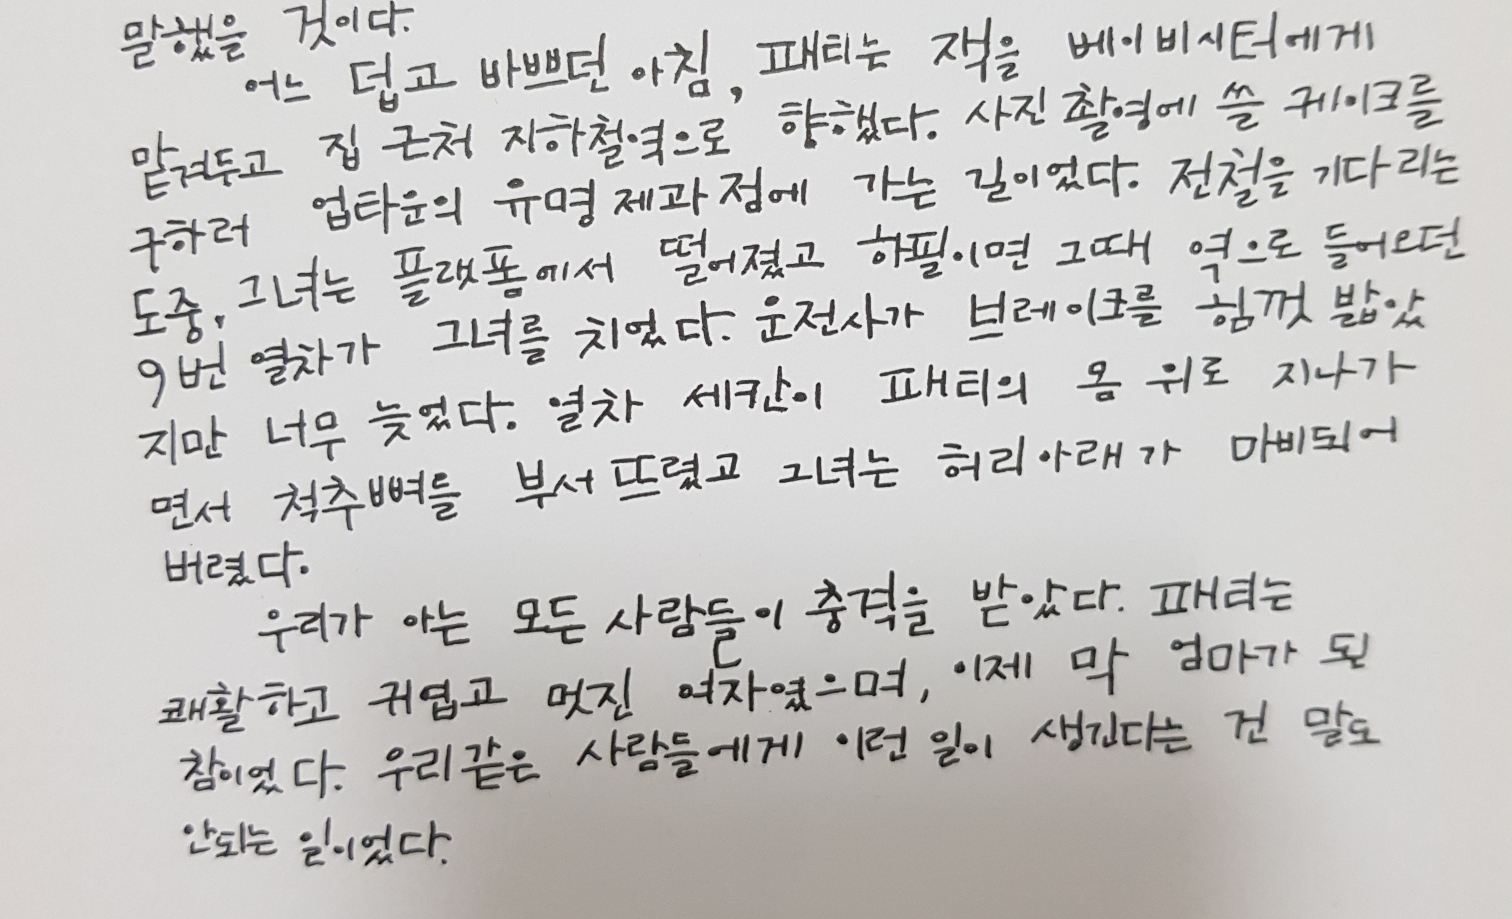 말했을 것이다.
어느 덥고 바쁘던 아침, 패티는 잭을 베이비시터에게
맡겨두고 집 근처 지하철역으로 향했다. 사진 촬영에 쓸 케이크를
구하러 업타운의 유명 제과점에 가는 길이었다. 전철을 기다리는
도중, 그녀는 플랫폼에서 떨어졌고 하필이면 그때 역으로 들어오던
9번 열차가 그녀를 치었다. 운전사가 브레이크를 힘껏 밟았
지만 너무 늦었다. 열차 세칸이 패티의 몸 위로 지나가
면서 척추뼈를 부서뜨렸고 그녀는 허리아래가 마비되어
버렸다.
우리가 아는 모든 사람들이 충격을 받았다. 패티는
쾌활하고 귀엽고 멋진 여자였으며, 이제 막 엄마가 된
참이었다. 우리같은 사람들에게 이런 일이 생긴다는 건 말도
안되는 일이었다.